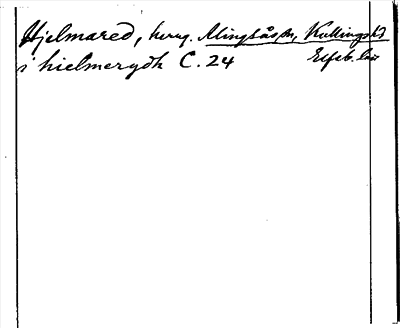 Hjelmared, herrg. Alingsås sn, Kullings hd
i hielmerydh C. 24 Elfsb. län